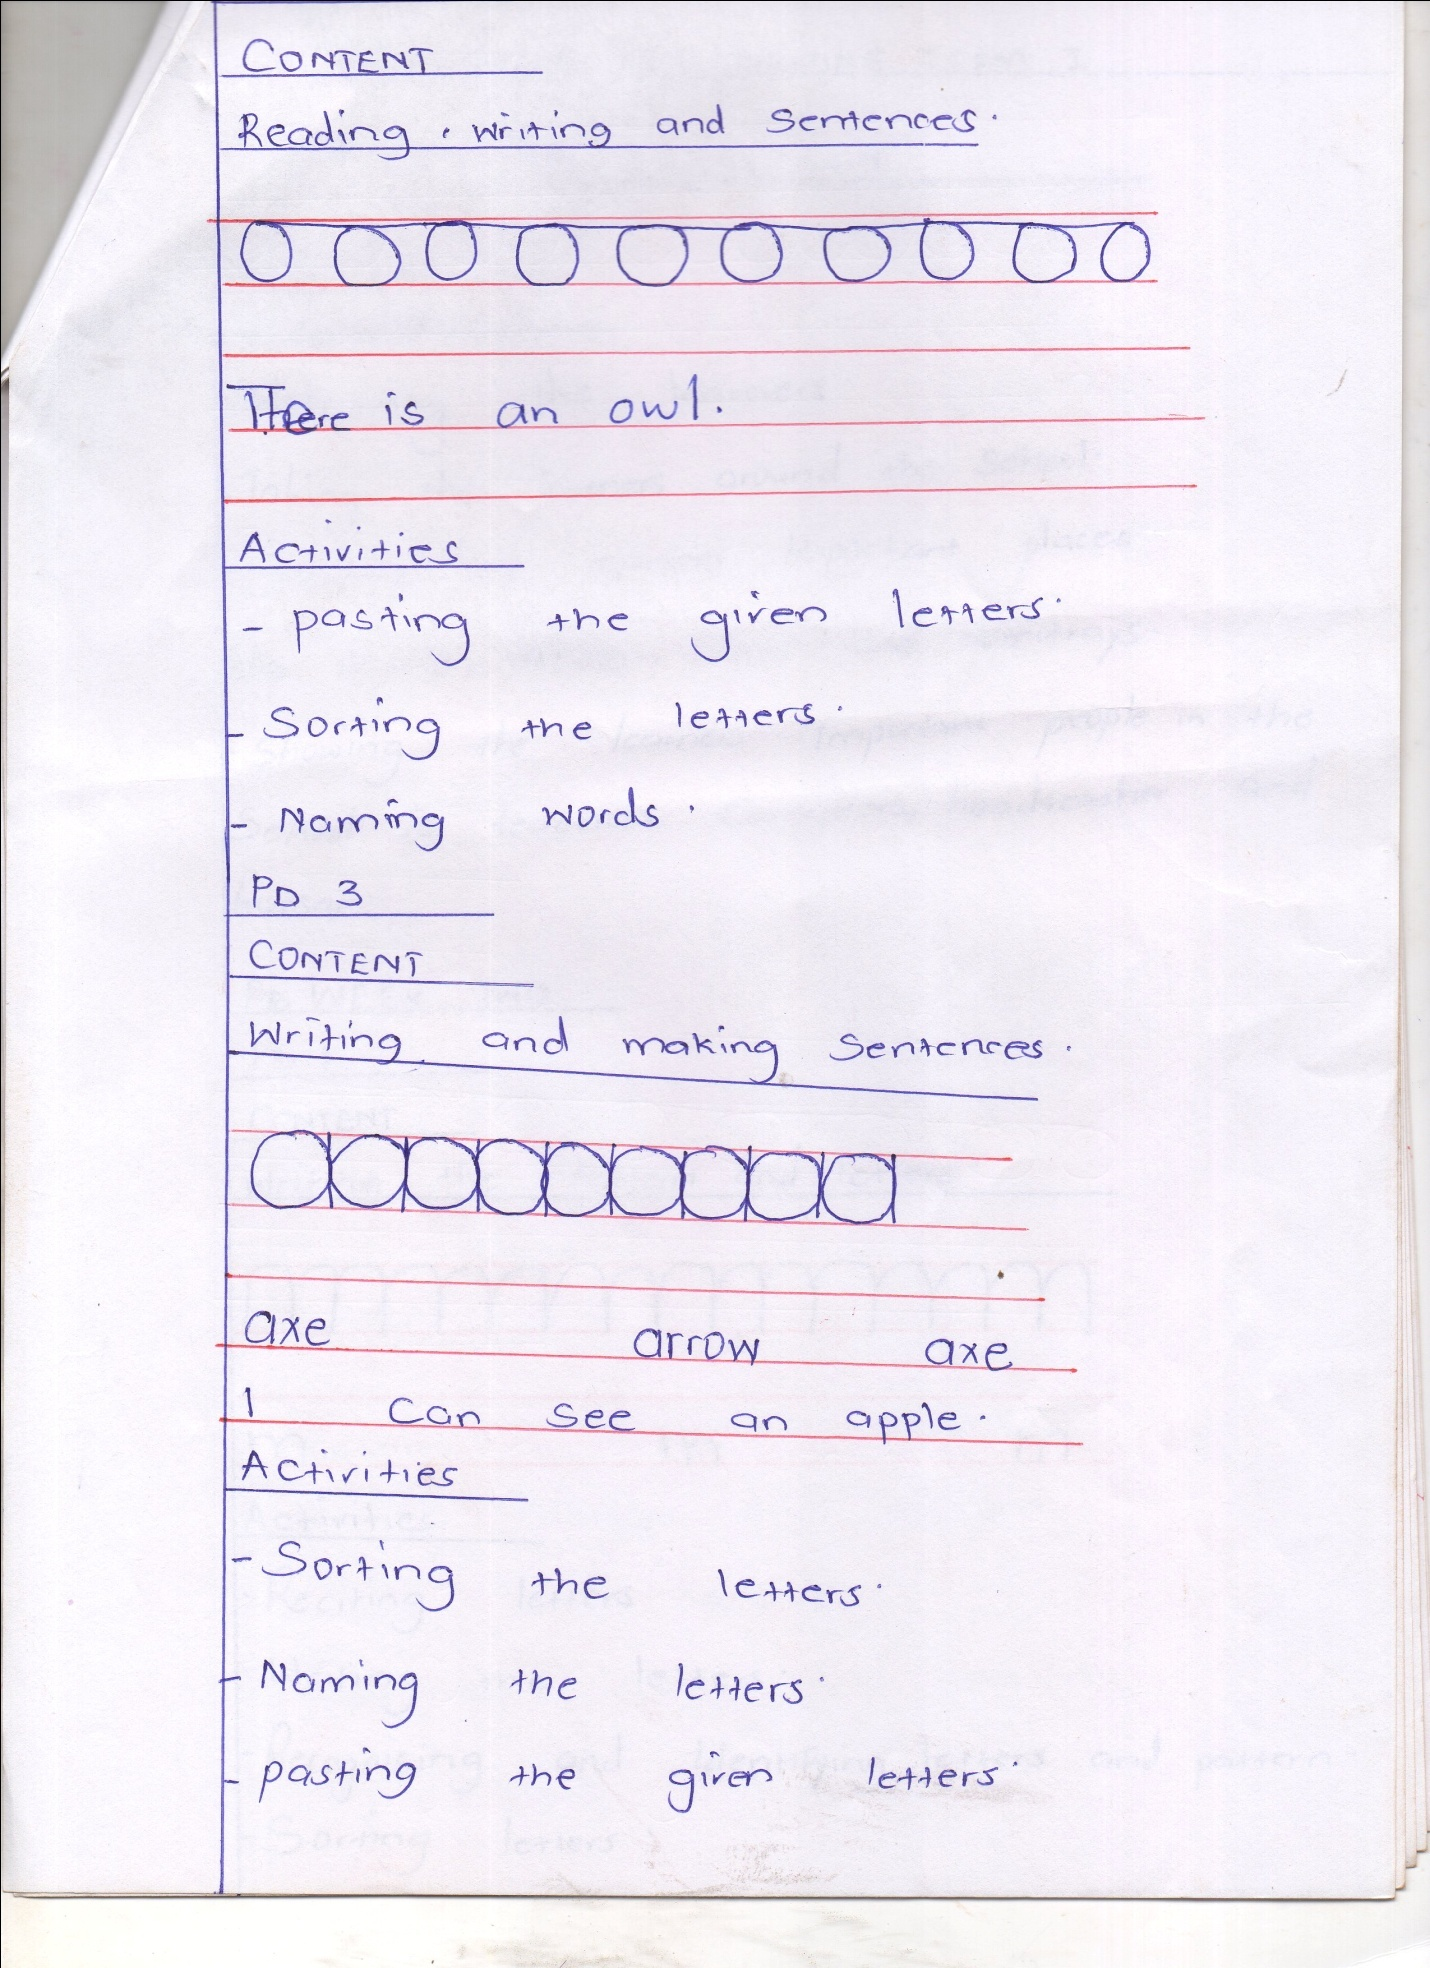 CONTENT
Reading, writing and sentences.
There is an owl.
Activities
- pasting the given letters.
- Sorting the letters.
- Naming words.
PD 3
CONTENT
Writing and making sentences.
axe arrow axe
I can see an apple.
Activities
- Sorting the letters.
- Naming the letters.
- pasting the given letters.